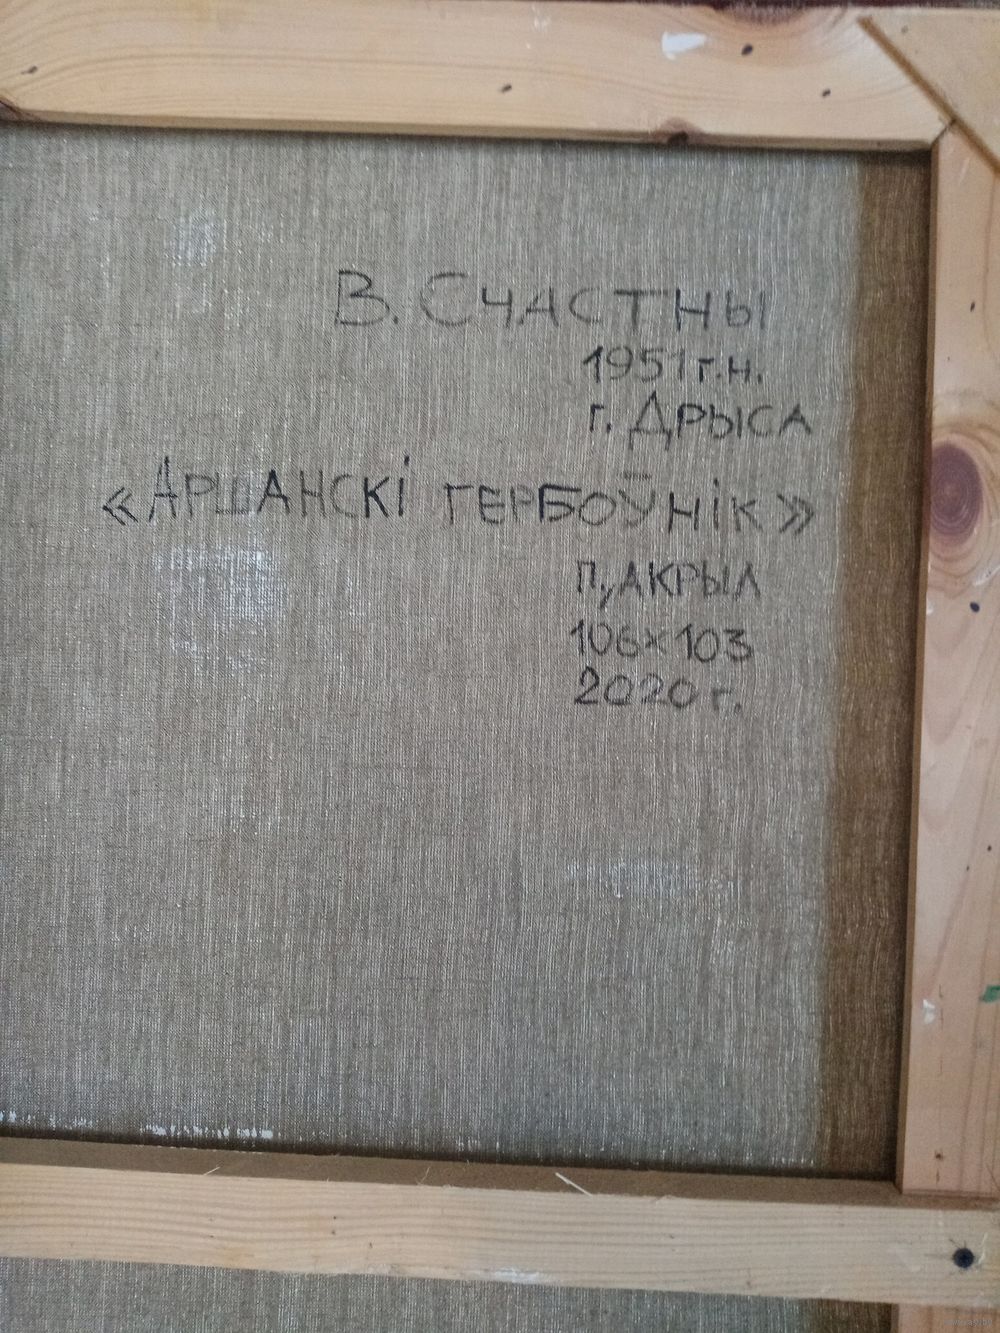 В. Счастны
1951 г.н.
г. Дрыса
«Аршанскі гербоўнік»
п, акрыл
106×103
2020 г.